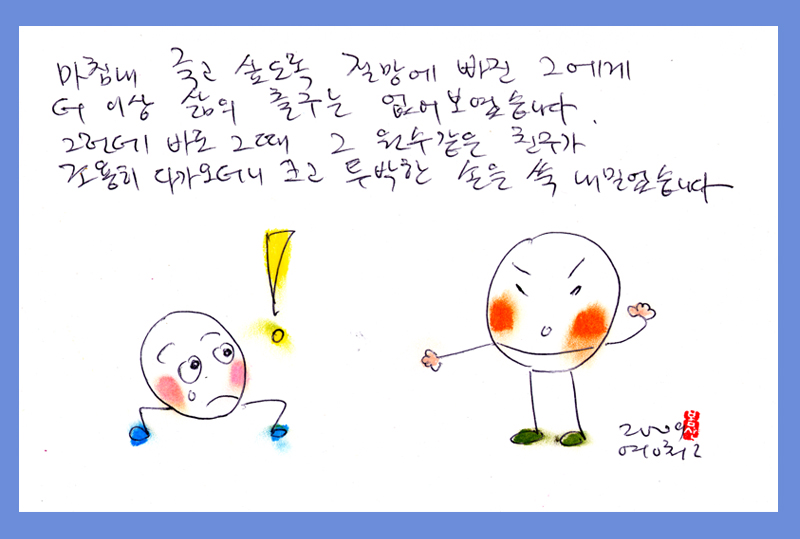 마침내 죽고 싶도록 절망에 빠진 그에게
더 이상 삶의 출구는 없어보였습니다.
그런데 바로 그때 그 원수같은 친구가
조용히 다가오더니 크고 투박한 손을 쑥 내밀었습니다
!
2009